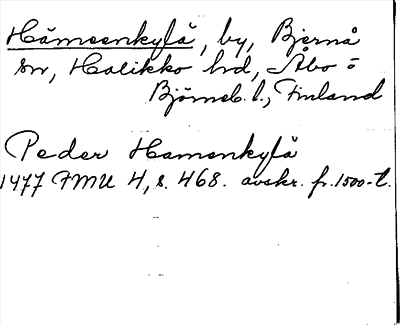 Hämeenkylä, by, Bjernå
sn, Halikko hd, Åbo o
Björneb. l., Finland
Peder Hamenkylä
1477 FMU 4, s. 468. avskr. fr. 1500-t.